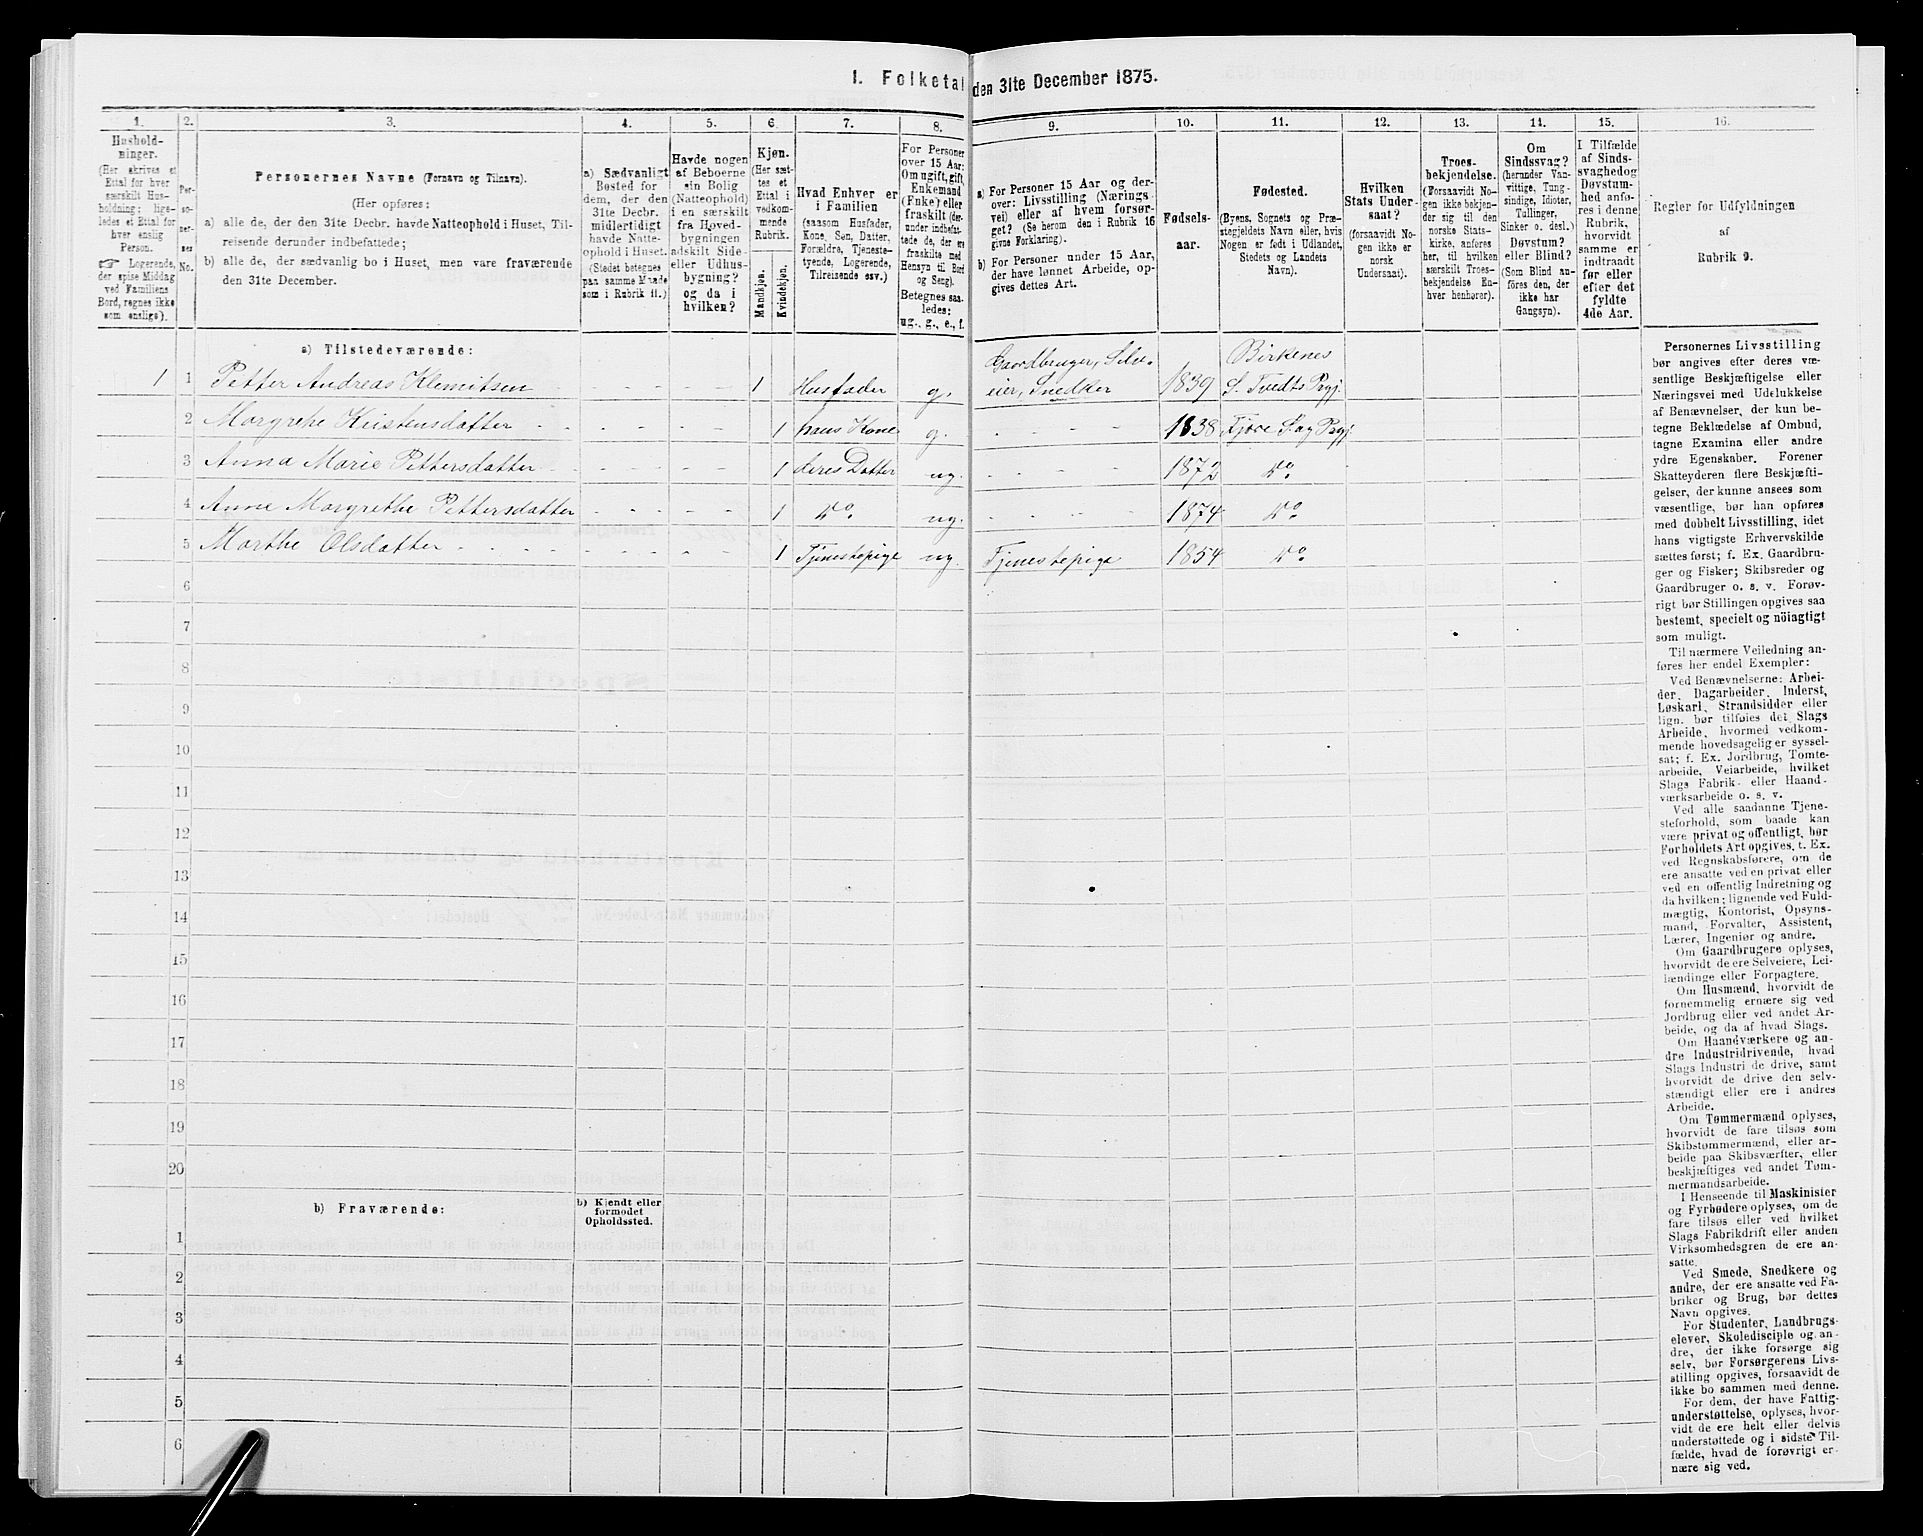 1. Folketal den 31te December 1875.
1.
2.
3.
4.
5.
6.
7.
8.
9.
10.
11.
12.
13.
14.
15.
16.
Hushold-
ninger.
(Her skrives et
Ettal for hver
særskilt Hus-
holdning; lige-
ledes et Ettal for
hver enslig
Person.
☞ Logerende,
der spise Middag
ved Familiens
Bord, regnes ikke
som enslige).
Per-
so-
ner-
nes
No.
Personernes Navne (Fornavn og Tilnavn).
(Her opføres:
a) alle de, der den 31te Decbr. havde Natteophold i Huset, Til-
reisende derunder indbefattede;
b) alle de, der sædvanlig bo i Huset, men vare fraværende
den 31te December.
a) Sædvanligt
Bosted for
dem, der den
31te Decbr.
midlertidigt
havde Natte-
ophold i Huset.
(Stedet betegnes
paa samme Maade
som i Rubrik 11.)
Havde nogen
af Beboerne
sin Bolig
(Natteophold)
i en særskilt
fra Hoved-
bygningen
adskilt Side-
eller Udhus-
bygning?
og da i
hvilken?
Kjøn.
(Her sæt-
tes et
Ettal i
vedkom-
mende
Rubrik.
Mandkjøn.
Kvindekjøn.
Hvad Enhver er
i Familien
(saasom Husfader,
Kone, Søn, Datter,
Forældre, Tjeneste-
tyende, Logerende,
Tilreisende osv.)
For Personer
over 15 Aar:
Om ugift, gift,
Enkemand
(Enke) eller
fraskilt (der-
under indbefat-
tede de, der ere
fraskilte med
Hensyn til Bord
og Seng).
Betegnes saa-
ledes:
ug., g., e., f.
a) For Personer 15 Aar og der-
over: Livsstilling (Nærings-
vei) eller af hvem forsør-
get? (Se herom den i Rubrik 16
givne Forklaring).
b) For Personer under 15 Aar,
der have lønnet Arbeide, op-
gives dettes Art.
Fødsels-
aar.
Fødested.
(Byens, Sognets og Præ-
stegjeldets Navn eller, hvis
Nogen er født i Udlandet,
Stedets og Landets
Navn).
Hvilken
Stats Under-
saat?
(forsaavidt No-
gen ikke er
norsk
Undersaat).
Troes-
bekjendelse.
(Forsaavidt No-
gen ikke bekjen-
der sig til den
norske Stats-
kirke, anføres
her, til hvilken
særskilt Troes-
bekjendelse En-
hver henhører).
Om
Sindssvag?
(herunder Van-
vittige, Tung-
sindige, Idioter,
Tullinger,
Sinker o. desl.)
Døvstum?
eller Blind?
(Som Blind an-
føres den, der
ikke har
Gangsyn).
I Tilfælde
af Sinds-
svaghed og
Døvstum-
hed anfø-
res i denne
Rubrik,
hvorvidt
samme er
indtraadt
før eller
efter det
fyldte
4de Aar.
Regler for Udfyldningen
af
Rubrik 9.
a) Tilstedeværende:
1 1 Petter Andreas Klemitsen 1 Husfader g. Gaardbruger, Selv-
eier, Snedker 1839 Birkenes
S. Tvedts Prgj.
2 Margrethe Kristensdatter 1 hans Kone g. 1838 Fjære Sag Prgj.
3 Anna Marie Pettersdatter 1 deres Datter ug. 1872 do
4 Anne Margrethe Pettersdatter 1 do ug. 1874 do
5 Marthe Olsdatter 1 Tjenestepige ug. Tjenestepige 1854 do
6
7
8
9
10
11
12
13
14
15
16
17
18
19
20
b) Fraværende:
b) Kjendt eller
formodet
Opholdssted.
1
2
3
4
5
6
Personernes Livsstilling
bør angives efter deres væ-
sentlige Beskjæftigelse eller
Næringsvei med Udelukkelse
af Benævnelser, der kun be-
tegne Beklædelse af Ombud,
tagne Examina eller andre
ydre Egenskaber. Forener
Skatteyderen flere Beskjæfti-
gelser, der kunne ansees som
væsentlige, bør han opføres
med dobbelt Livsstilling, idet
hans vigtigste Erhvervskilde
sættes først; f. Ex. Gaardbru-
ger og Fisker; Skibsreder og
Gaardbruger o. s. v. Forøv-
rigt bør Stillingen opgives saa
bestemt, specielt og nöiagtigt
som muligt.
Til nærmere Veiledning an-
føres her endel Exempler:
Ved Benævnelserne: Arbei-
der, Dagarbeider, Inderst,
Løskarl, Strandsidder eller
lign. bør tilføies det Slags
Arbeide, hvormed vedkom-
mende hovedsagelig er syssel-
sat; f. Ex. Jordbrug, Tomte-
arbeide, Veiarbeide, hvilket
Slags Fabrik- eller Haand-
værksarbeide o. s. v.
Ved alle saadanne Tjene-
steforhold, som baade kan
være privat og offentligt, bør
Forholdets Art opgives, t. Ex.
ved Regnskabsførere, om de
ere ansatte ved en privat eller
ved en offentlig Indretning og
da hvilken; lignende ved Fuld-
mægtig, Kontorist, Opsyns-
mand, Forvalter, Assistent,
Lærer, Ingeniør og andre.
Om Gaardbrugere oplyses,
hvorvidt de ere Selveiere, Lei-
lændinge eller Forpagtere.
Om Husmænd, hvorvidt de
fornemmelig ernære sig ved
Jordbrug eller ved andet Ar-
beide, og da af hvad Slags.
Om Haandværkere og an-
dre Industridrivende, hvad
Slags Industri de drive, samt
hvorvidt de drive den selv-
stændigt eller ere i andres
Arbeide.
Om Tømmermænd oplyses,
hvorvidt de fare tilsøs som
Skibstømmermænd, eller ar-
beide paa Skibsværfter, eller
beskjæftiges ved andet Tøm-
mermandsarbeide.
I Henseende til Maskinister
og Fyrbødere oplyses, om de
fare tilsøs eller ved hvilket
Slags Fabrikdrift eller anden
Virksomhedsgren de ere an-
satte.
Ved Smede, Snedkere og
andre, der ere ansatte ved Fa-
briker og Brug, bør dettes
Navn opgives.
For Studenter, Landbrugs-
elever, Skoledisciple og an-
dre, der ikke forsørge sig
selv, bør Forsørgerens Livs-
stilling opgives, forsaavidt de
ikke bo sammen med denne.
For dem, der have Fattig-
understøttelse, oplyses, hvor-
vidt de ere helt eller delvis
understøttede og i sidste Til-
fælde, hvad de forøvrigt er-
nære sig ved.